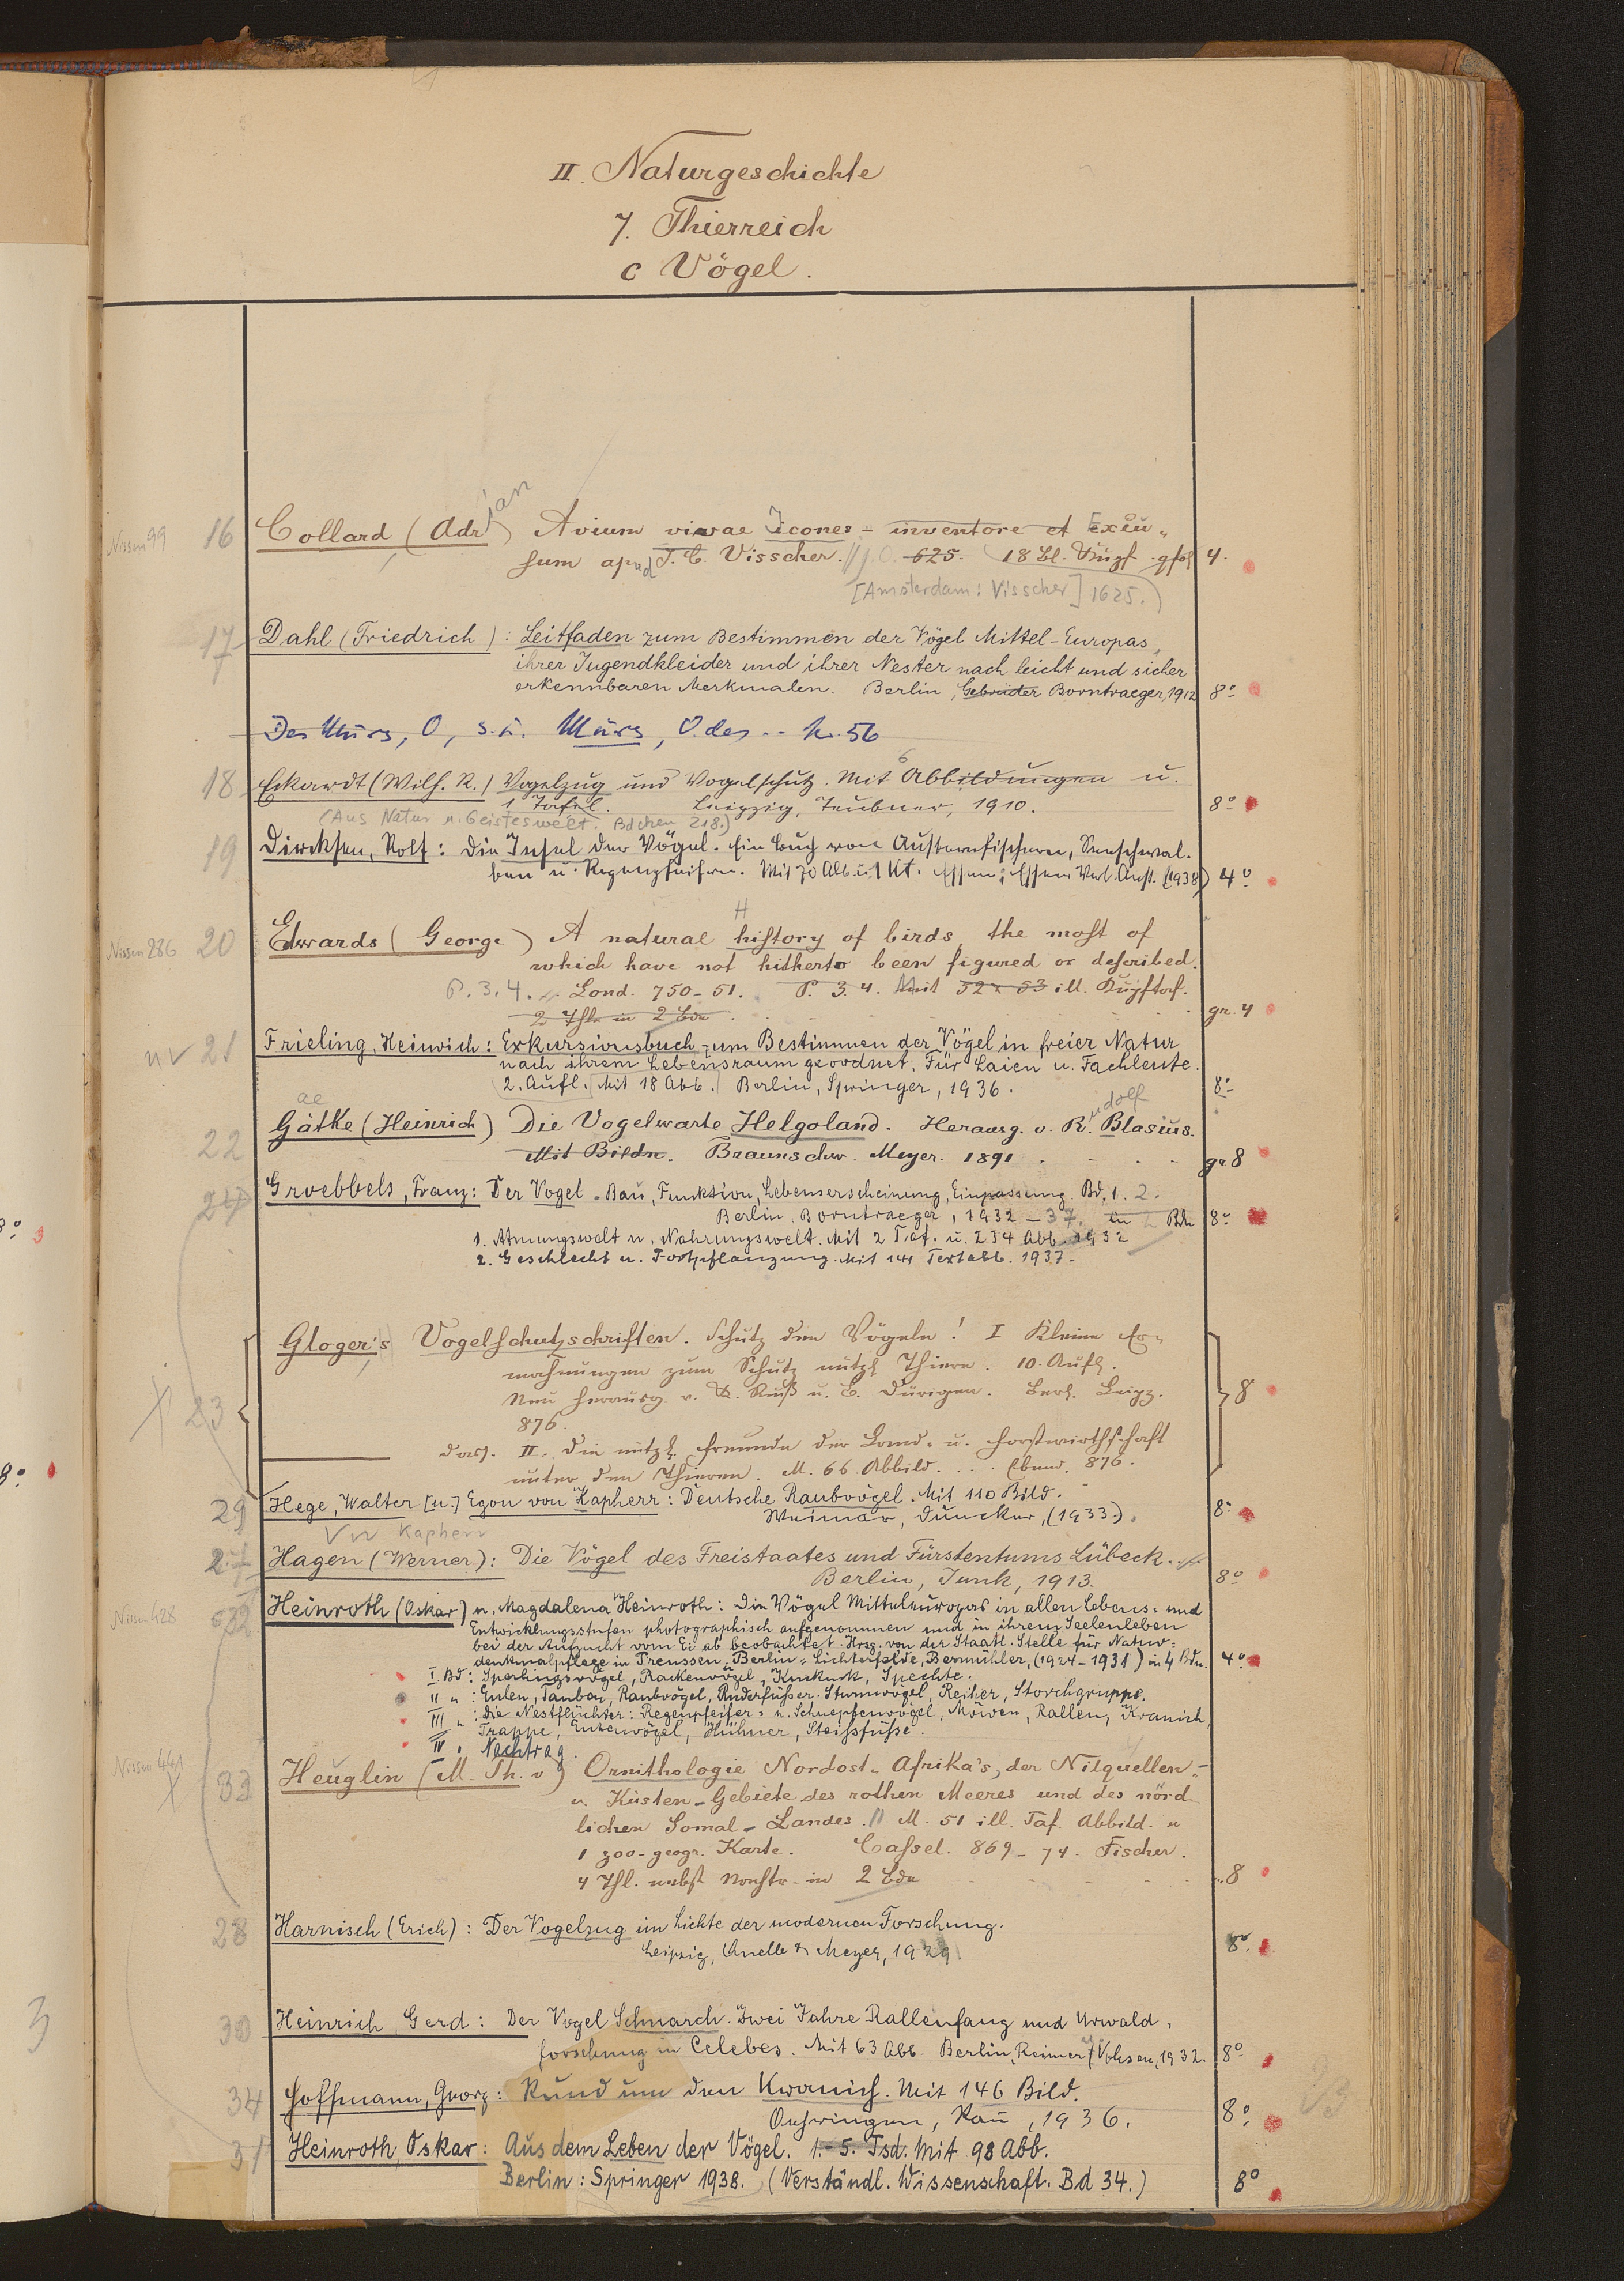 II. Naturgeschichte
7. Thierreich
c Vögel.
Nissen 99 16 Collard (Adrian) Avium vivae Icones - inventore et Excu-
sum apud J. C. Visscher. 625. 18 Bl. Kupf. 4.
[Amsterdam: Visscher] 1625.)
17 Dahl (Friedrich): Leitfaden zum Bestimmen der Vögel Mittel-Europas,
ihrer Jugendkleider und ihrer Nester nach leicht und sicher
erkennbaren Merkmalen. Berlin, Gebrüder Borntraeger, 1912 8°
Des Murs, O, s. u. Murs, O. des .. Nr. 56
18 Eckardt (Wilh. R.) Vogelzug und Vogelschutz. Mit 6 Abbildungen u.
1 Tafel. Leipzig, Teubner, 1910. 8°
(Aus Natur u. Geisteswelt. Bdchen 218.)
19 Dircksen, Rolf: Die Insel der Vögel. Ein Buch von Austernfischern, Seeschwal-
ben u. Regenpfeifern. Mit 70 Abb. u. 1 Kt. Essen: Essener Verl. Anst. (1938) 4°
Nissen 286 20 Edwards (George) A natural history of birds, the most of
which have not hitherto been figured or described.
P. 3. 4. Lond. 750-51. P. 3. 4. Mit 52 + 53 ill. Kupftaf.
2 Thle in 2 Bde gr. 4
21 Frieling, Heinrich: Exkursionsbuch zum Bestimmen der Vögel in freier Natur
nach ihrem Lebensraum geordnet. Für Laien u. Fachleute.
2. Aufl. Mit 18 Abb. Berlin, Springer, 1936. 8°
ae
22 Gätke (Heinrich) Die Vogelwarte Helgoland. Herausg. v. Rudolf Blasius.
Mit Bildn. Braunschw. Meyer. 1891 gr 8
24 Groebbels, Franz: Der Vogel. Bau, Funktion, Lebenserscheinung, Einpassung. Bd. 1. 2.
Berlin, Borntraeger, 1932-37. in 2 Bdn 8°
1. Atmungswelt u. Nahrungswelt. Mit 2 Taf. u. 234 Abb. 1932
2. Geschlecht u. Fortpflanzung. Mit 141 Textabb. 1937.
23 Gloger's Vogelschutzschriften. Schutz den Vögeln! I Kleine Er-
mahnungen zum Schutz nützl. Thiere. 10. Aufl.
Neu herausg. v. K. Ruß u. B. Dürigen. Berl. Leipz.
876. 8
Dass. II. Die nützl. Freunde der Land- u. Forstwirthschaft
unter den Thieren. M. 66. Abbild. ... Ebend. 876.
29 Hege, Walter [u.] Egon von Kapherr: Deutsche Raubvögel. Mit 110 Bild.
Weimar, Duncker, (1933.) 8°
Kapherr
27 Hagen (Werner): Die Vögel des Freistaates und Fürstentums Lübeck.
Berlin, Junk, 1913. 8°
Nissen 428 32 Heinroth (Oskar) u. Magdalena Heinroth: Die Vögel Mitteleuropas in allen Lebens- und
Entwicklungsstufen photographisch aufgenommen und in ihrem Seelenleben
bei der Aufzucht vom Ei ab beobachtet. Hrsg. von der Staatl. Stelle für Natur-
denkmalpflege in Preussen. Berlin-Lichterfelde, Bermühler, (1924-1931) in 4 Bdn. 4°
I. Bd: Sperlingsvögel, Rackenvögel, Kuckuck, Spechte.
II " : Eulen, Tauben, Raubvögel, Ruderfüßer, Sturmvögel, Reiher, Storchgruppe.
III " : Die Nestflüchter: Regenpfeifer- u. Schnepfenvögel, Möwen, Rallen, Kranich,
Trappe, Entenvögel, Hühner, Steißfüße.
IV " Nachtrag.
Nissen 441 33 Heuglin (M. Th. v) Ornithologie Nordost-Afrika's, der Nilquellen-
u. Küsten-Gebiete des rothen Meeres und des nörd-
lichen Somal-Landes. M. 51 ill. Taf. Abbild. u
1 zoo-geogr. Karte. Cassel. 869-74. Fischer.
4 Thl. nebst Nachtr. in 2 Bde 8
28 Harnisch (Erich): Der Vogelzug im Lichte der modernen Forschung.
Leipzig, Quelle & Meyer, 1929. 8°
30 Heinrich, Gerd: Der Vogel Schnarch. Zwei Jahre Rallenfang und Urwald-
forschung in Celebes. Mit 63 Abb. Berlin, Reimer/Vohsen, 1932. 8°
34 Hoffmann, Georg: Rund um den Kranich. Mit 146 Bild.
Oehringen, Rau, 1936. 8°
31 Heinroth, Oskar: Aus dem Leben der Vögel. 1.-5. Tsd. Mit 98 Abb.
Berlin: Springer 1938. (Verständl. Wissenschaft. Bd 34.) 8°